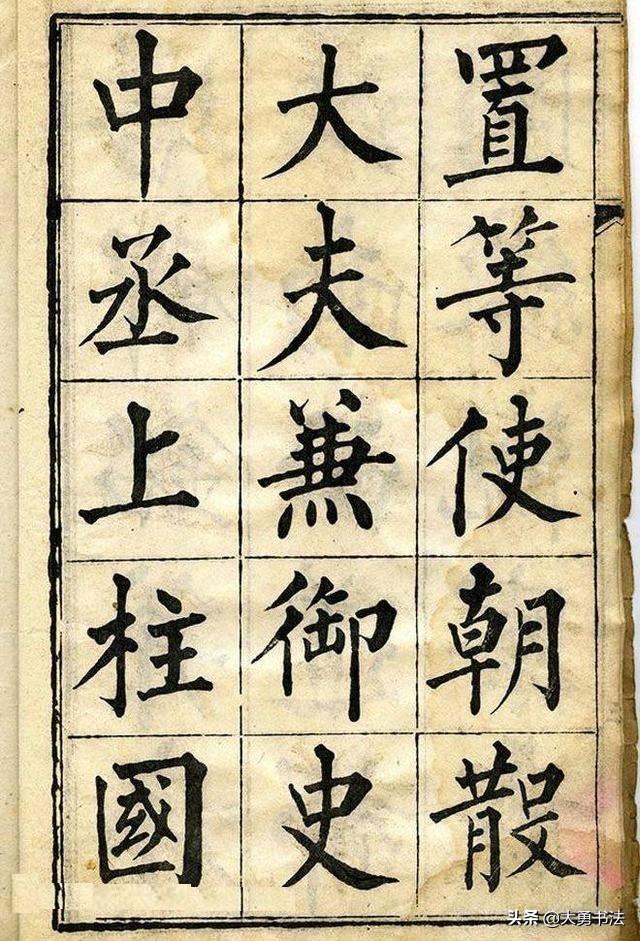 置等使朝散
大夫兼御史
中丞上柱國
头条 @大勇书法